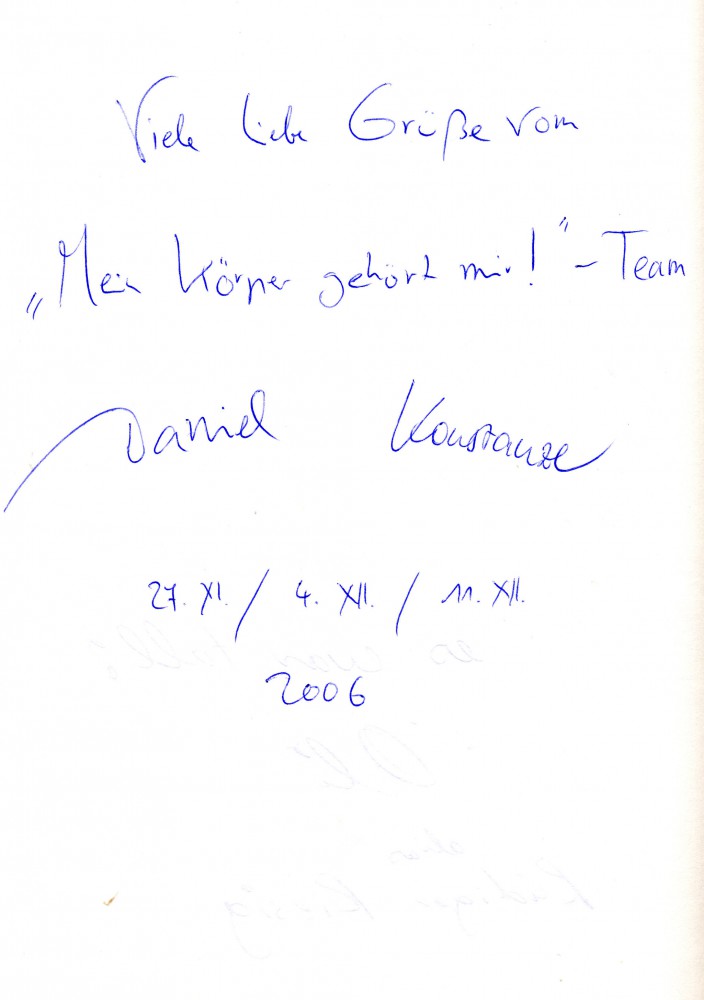 Viele liebe Grüße vom
„Mein Körper gehört mir!"-Team
Daniel Konstanze
27. XI. / 4. XII. / 11. XII.
2006